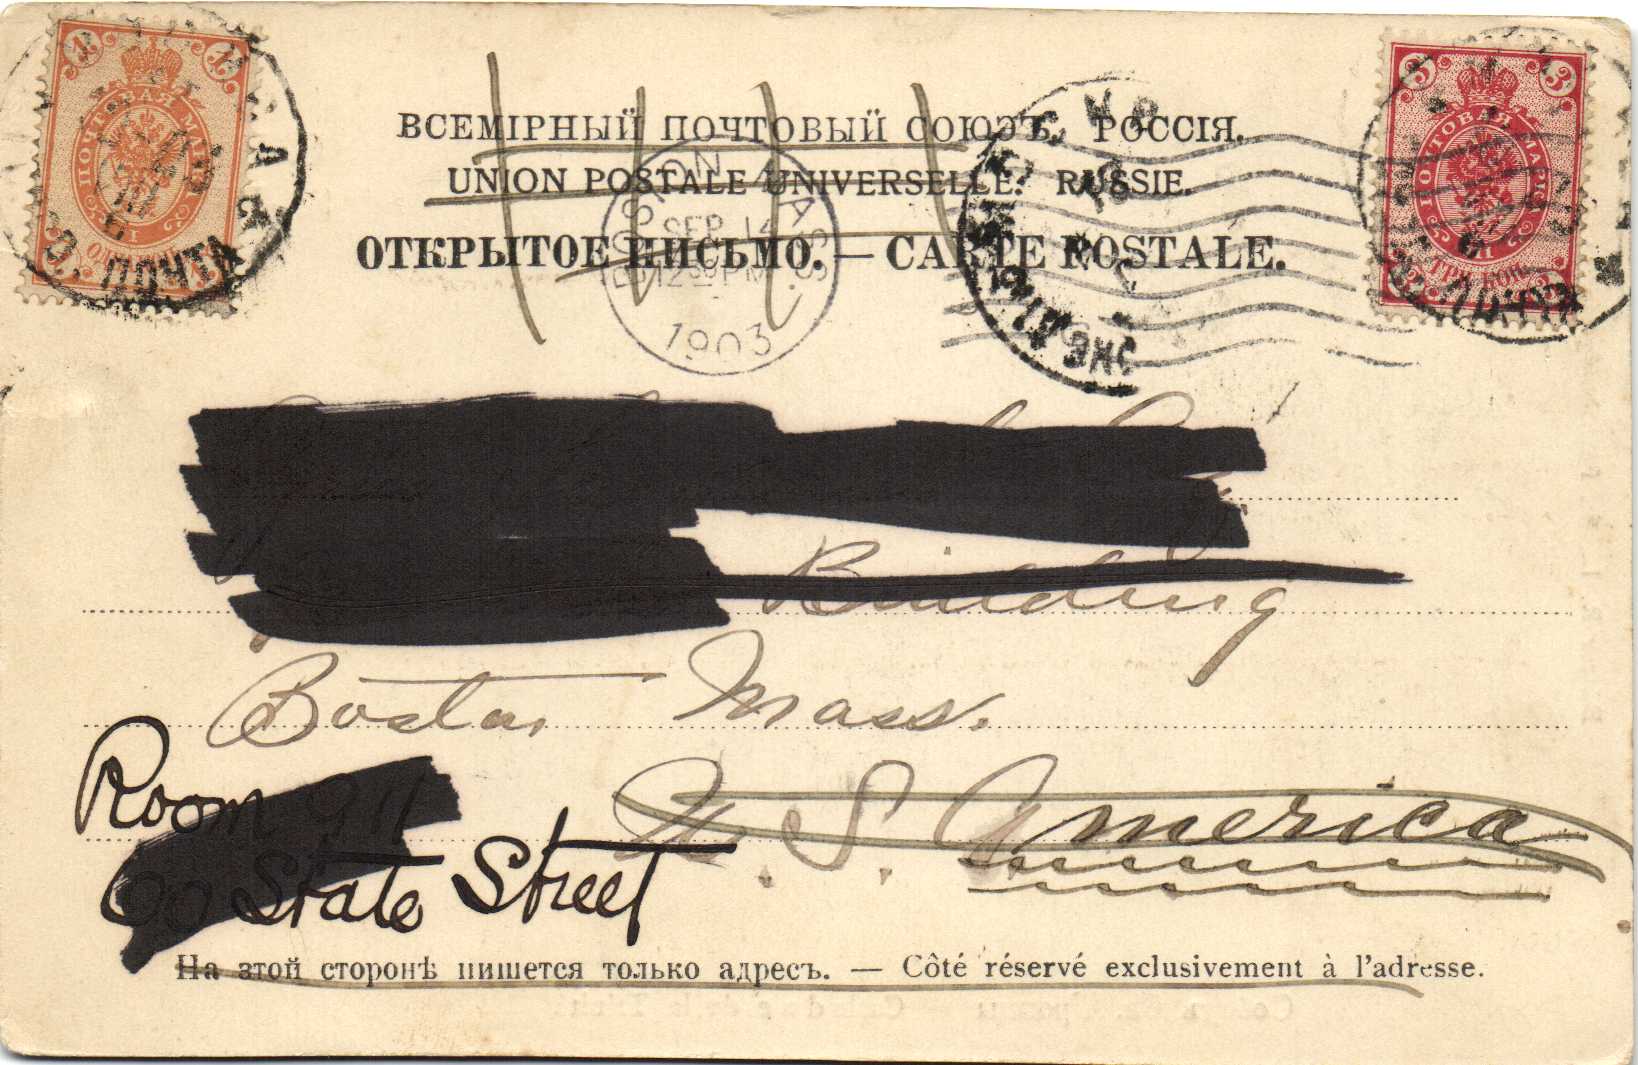 ВСЕМІРНЫЙ ПОЧТОВЫЙ СОЮЗЪ. РОССІЯ.
UNION POSTALE UNIVERSELLE. RUSSIE.
ОТКРЫТОЕ ПИСЬМО. — CARTE POSTALE.
1 1
ПОЧТОВАЯ МАРКА
ПОЧТА
BOSTON MASS.
SEP 14
12 30 PM
1903
3 3
ПОЧТОВАЯ МАРКА
ТРИ КОП.
Building
Boston, Mass.
U. S. America
Room 911
60 State Street
На этой сторонѣ пишется только адресъ. — Côté réservé exclusivement à l'adresse.